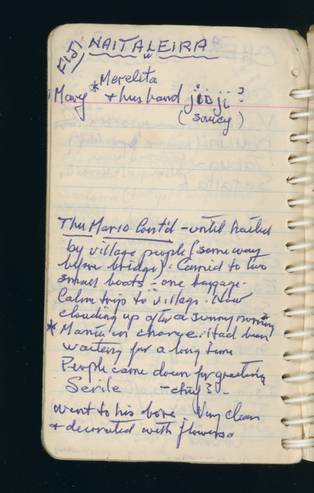 FIJI NAITALEIRA
Merelita
Mary * + husband jioji?
(saucy)
Thu Mar 10 Cont'd - until hailed
by village people (some way
before bridge). Carried to two
small boats - one baggage.
Calm trip to village. Now
clouding up after a sunny morning
* in charge. Had been
waiting for a long time
People came down for greeting
Serile - chief
went to his bore. Very clean
+ decorated with flowers.